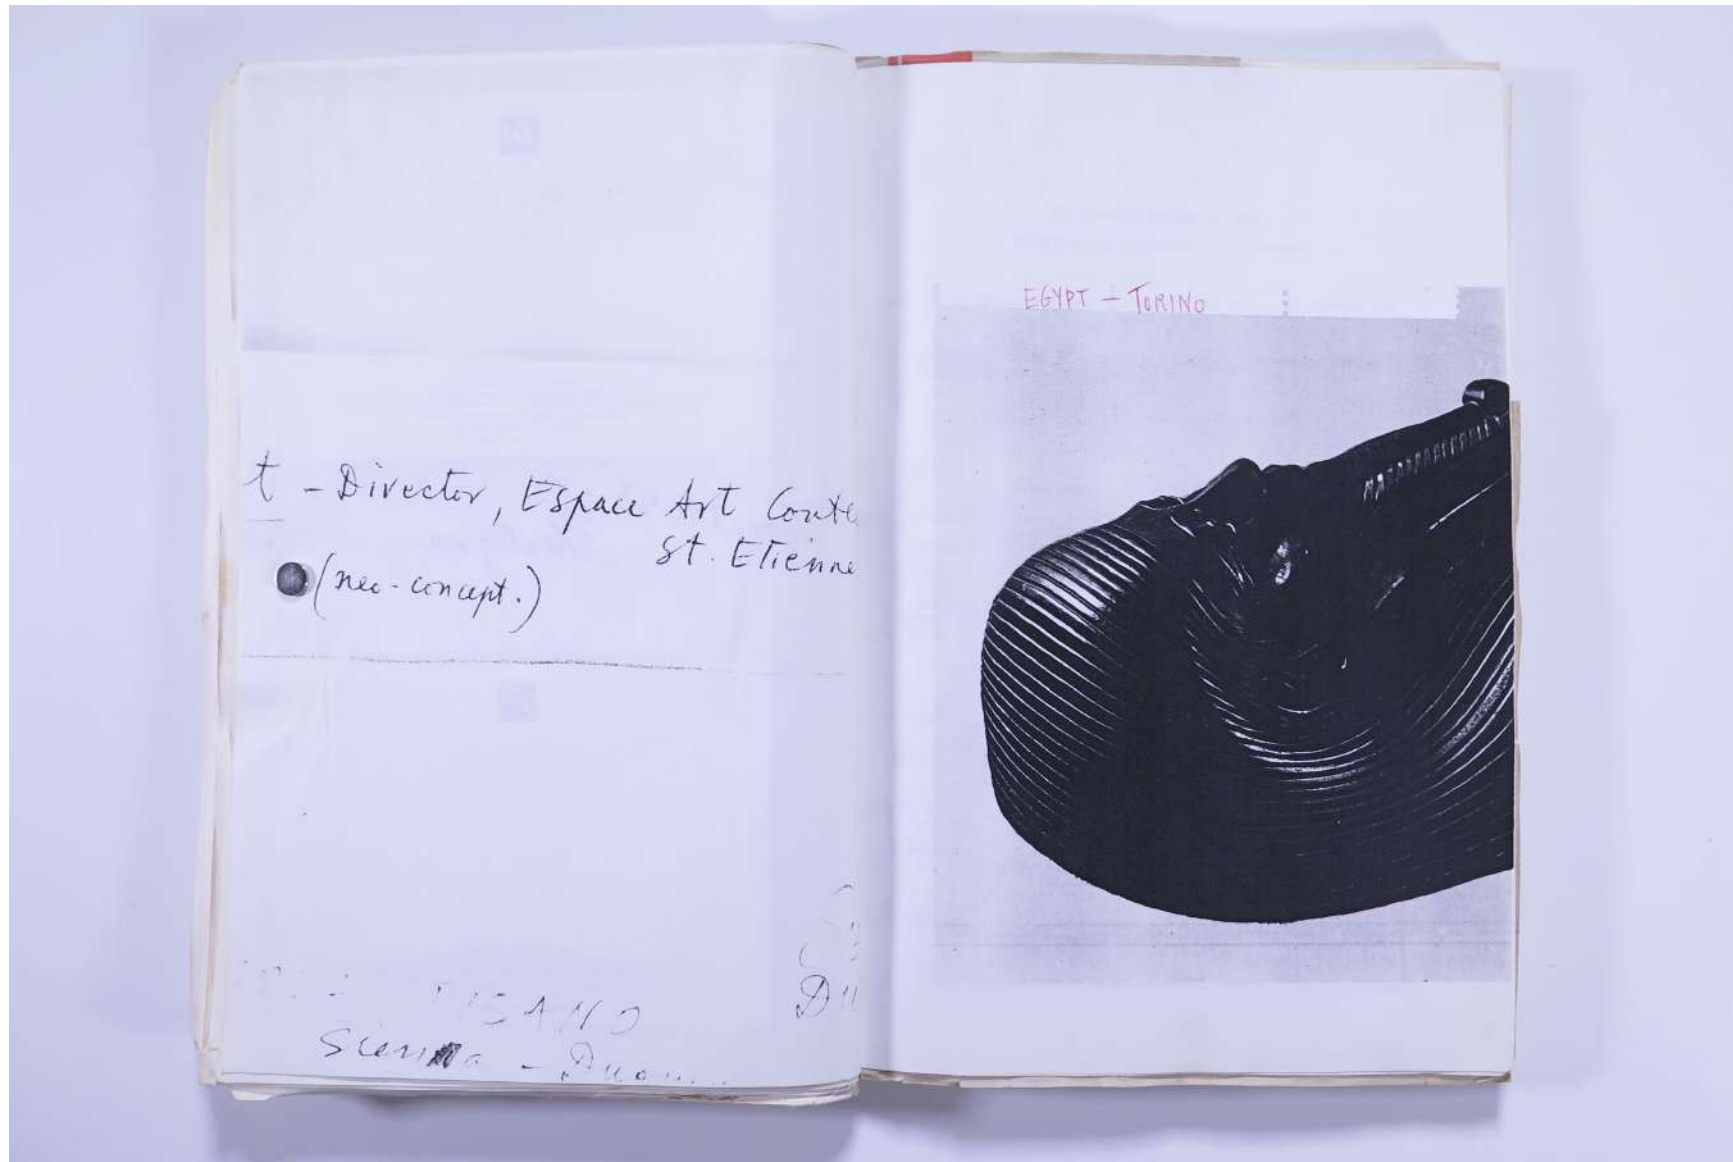 t - Director, Espace Art Conte
St. Etienne
(neo-concept.)
ISANO
Sienna - Duom
Du
EGYPT - TORINO